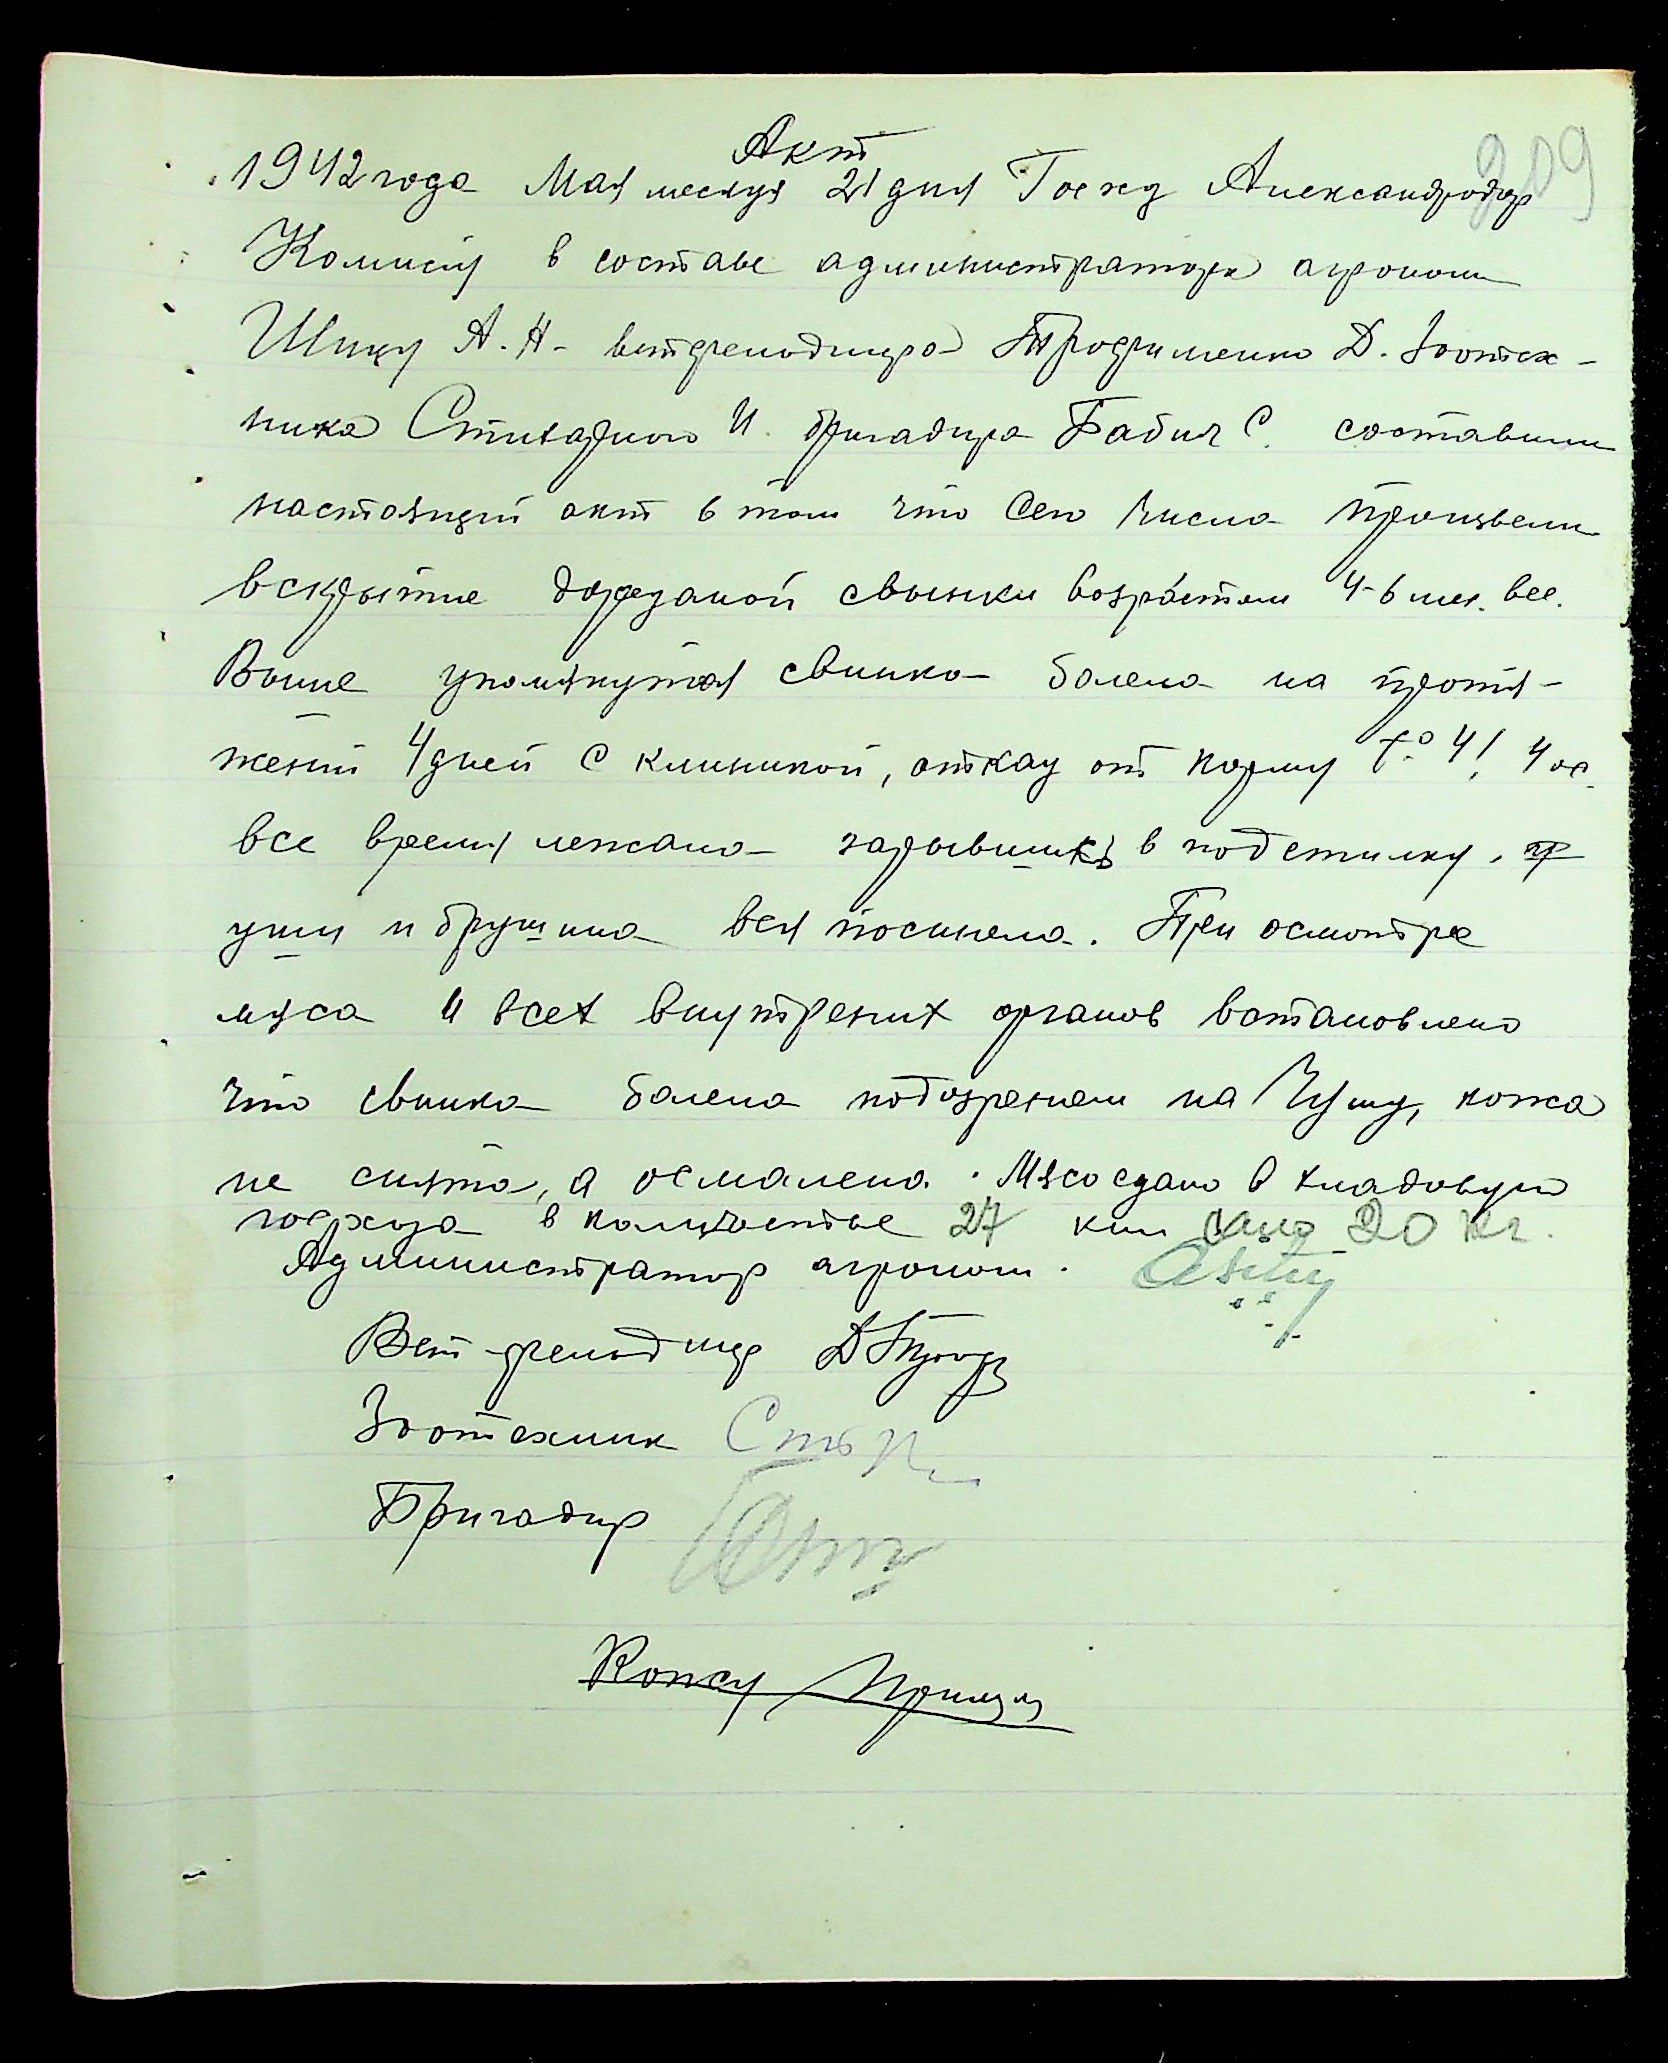 209
Акт
1942 года Мая месяця 21 дня Госхоз Александродар
Комисия в составе администратора агронома
Шпику А.Н. ветфельдшера Трофименко Д. Зоотех-
ника Стихарного И. бригадира Бабич С. составили
настоящий акт в том что сего числа произвели
вскрытие дорезаной свынки возрастом 4-6 мес.
Выше упомянутая свинка болела на протя-
жении 4 дней с клиникой, отказ от корму t° 41,4
все время лежала зарывшись в подстилку,
уши и брушина вся посинела. При осмотре
мяса и всех внутрених органов востановлено
что свинка болела подозренем на Чуму, кожа
не снята, а осмалена. Мясо сдано в кладовую
госхоза в количестве 27 кил 20 кг.
Администратор агроном.
Вет-фельдшер ДТроф
Зоотехник
Бригадир
Кожу Принял